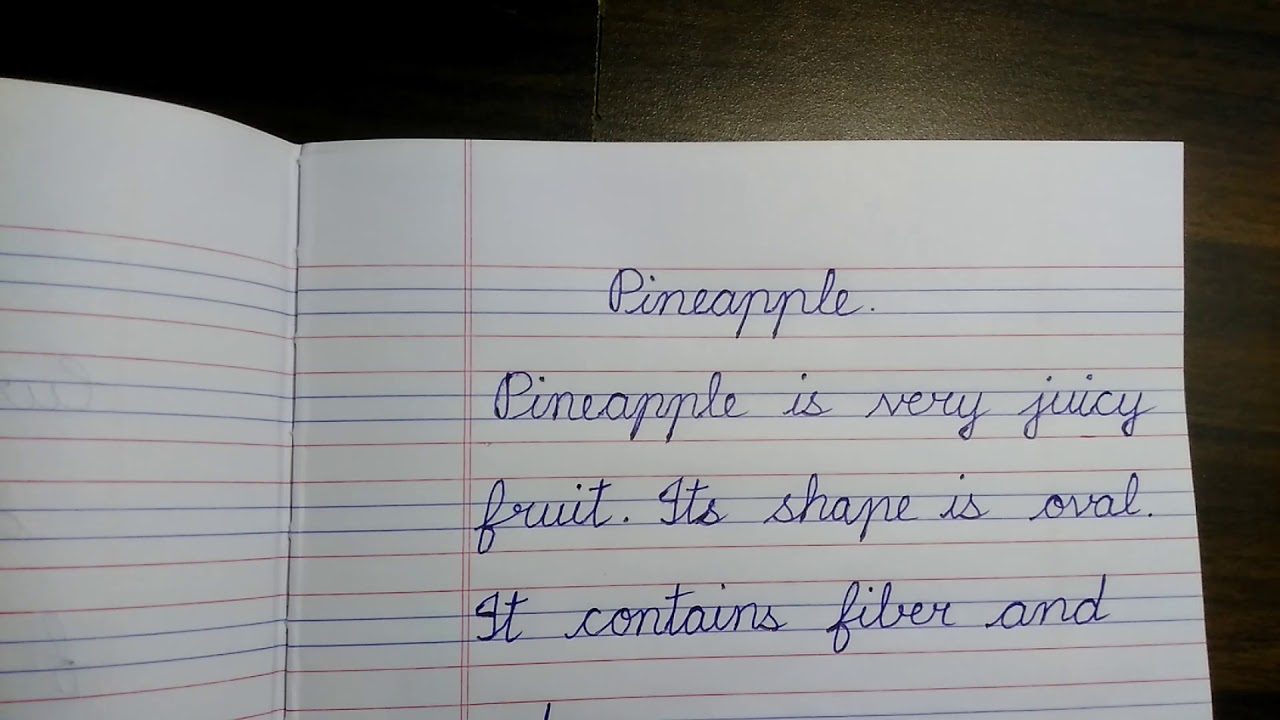 Pineapple.
Pineapple is very juicy
fruit. Its shape is oval.
It contains fiber and